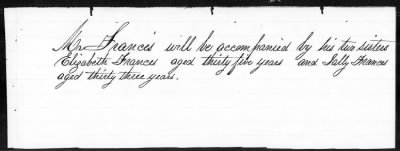 Mr Francis will be accompanied by his two sisters
Elizabeth Frances aged thirty five years and Sally Frances
aged thirty three years.